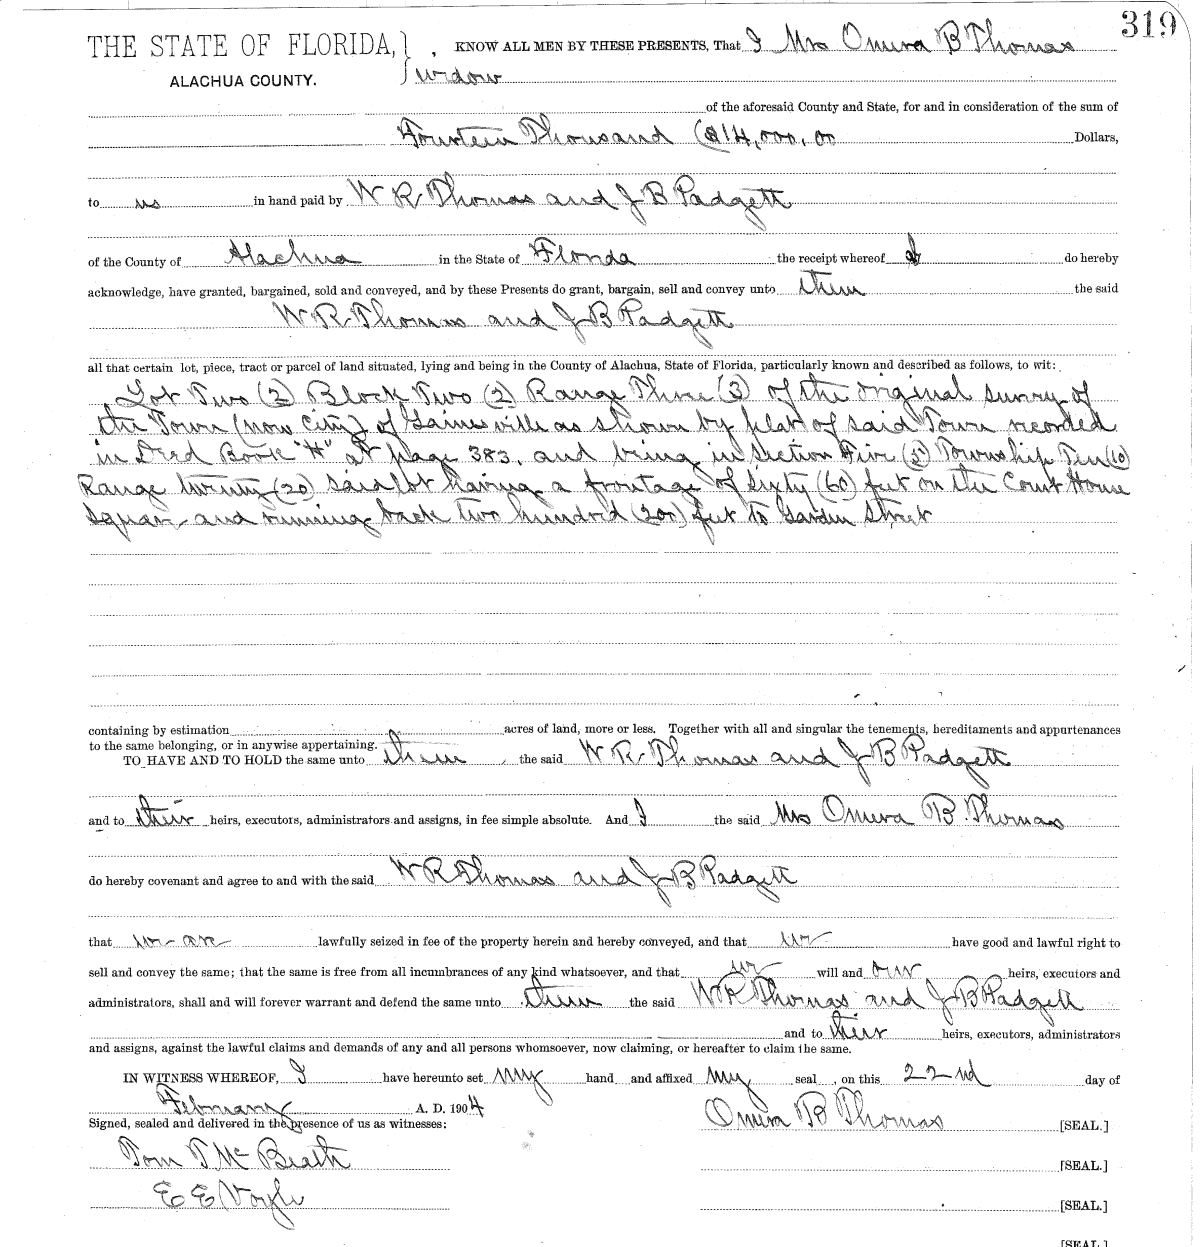 319
THE STATE OF FLORIDA, } , KNOW ALL MEN BY THESE PRESENTS, That I Mrs Omera B Thomas
ALACHUA COUNTY. widow
of the aforesaid County and State, for and in consideration of the sum of
Fourteen Thousand ($14,000.00 Dollars,
to us in hand paid by W R Thomas and J B Padgett
of the County of Alachua in the State of Florida the receipt whereof I do hereby
acknowledge, have granted, bargained, sold and conveyed, and by these Presents do grant, bargain, sell and convey unto them the said
W R Thomas and J B Padgett
all that certain lot, piece, tract or parcel of land situated, lying and being in the County of Alachua, State of Florida, particularly known and described as follows, to wit:
Lot Two (2) Block Two (2) Range Three (3) of the original survey of
the Town (now City) of Gainesville as shown by plat of said Town recorded
in Deed Book "H" at page 383, and being in Section Five (5) Township Ten (10)
Range twenty (20) said lot having a frontage of sixty (60) feet on the Court House
Square and running back two hundred (200) feet to Garden Street
containing by estimation acres of land, more or less. Together with all and singular the tenements, hereditaments and appurtenances
to the same belonging, or in anywise appertaining.
TO HAVE AND TO HOLD the same unto them , the said W R Thomas and J B Padgett
and to their heirs, executors, administrators and assigns, in fee simple absolute. And I the said Mrs Omera B Thomas
do hereby covenant and agree to and with the said W R Thomas and J B Padgett
that we are lawfully seized in fee of the property herein and hereby conveyed, and that we have good and lawful right to
sell and convey the same; that the same is free from all incumbrances of any kind whatsoever, and that we will and our heirs, executors and
administrators, shall and will forever warrant and defend the same unto them the said W R Thomas and J B Padgett
and to their heirs, executors, administrators
and assigns, against the lawful claims and demands of any and all persons whomsoever, now claiming, or hereafter to claim the same.
IN WITNESS WHEREOF, I have hereunto set my hand and affixed my seal , on this 22nd day of
February A. D. 1904
Omera B Thomas [SEAL.]
Signed, sealed and delivered in the presence of us as witnesses:
Tom T McBeath [SEAL.]
E E Voyle [SEAL.]
[SEAL.]